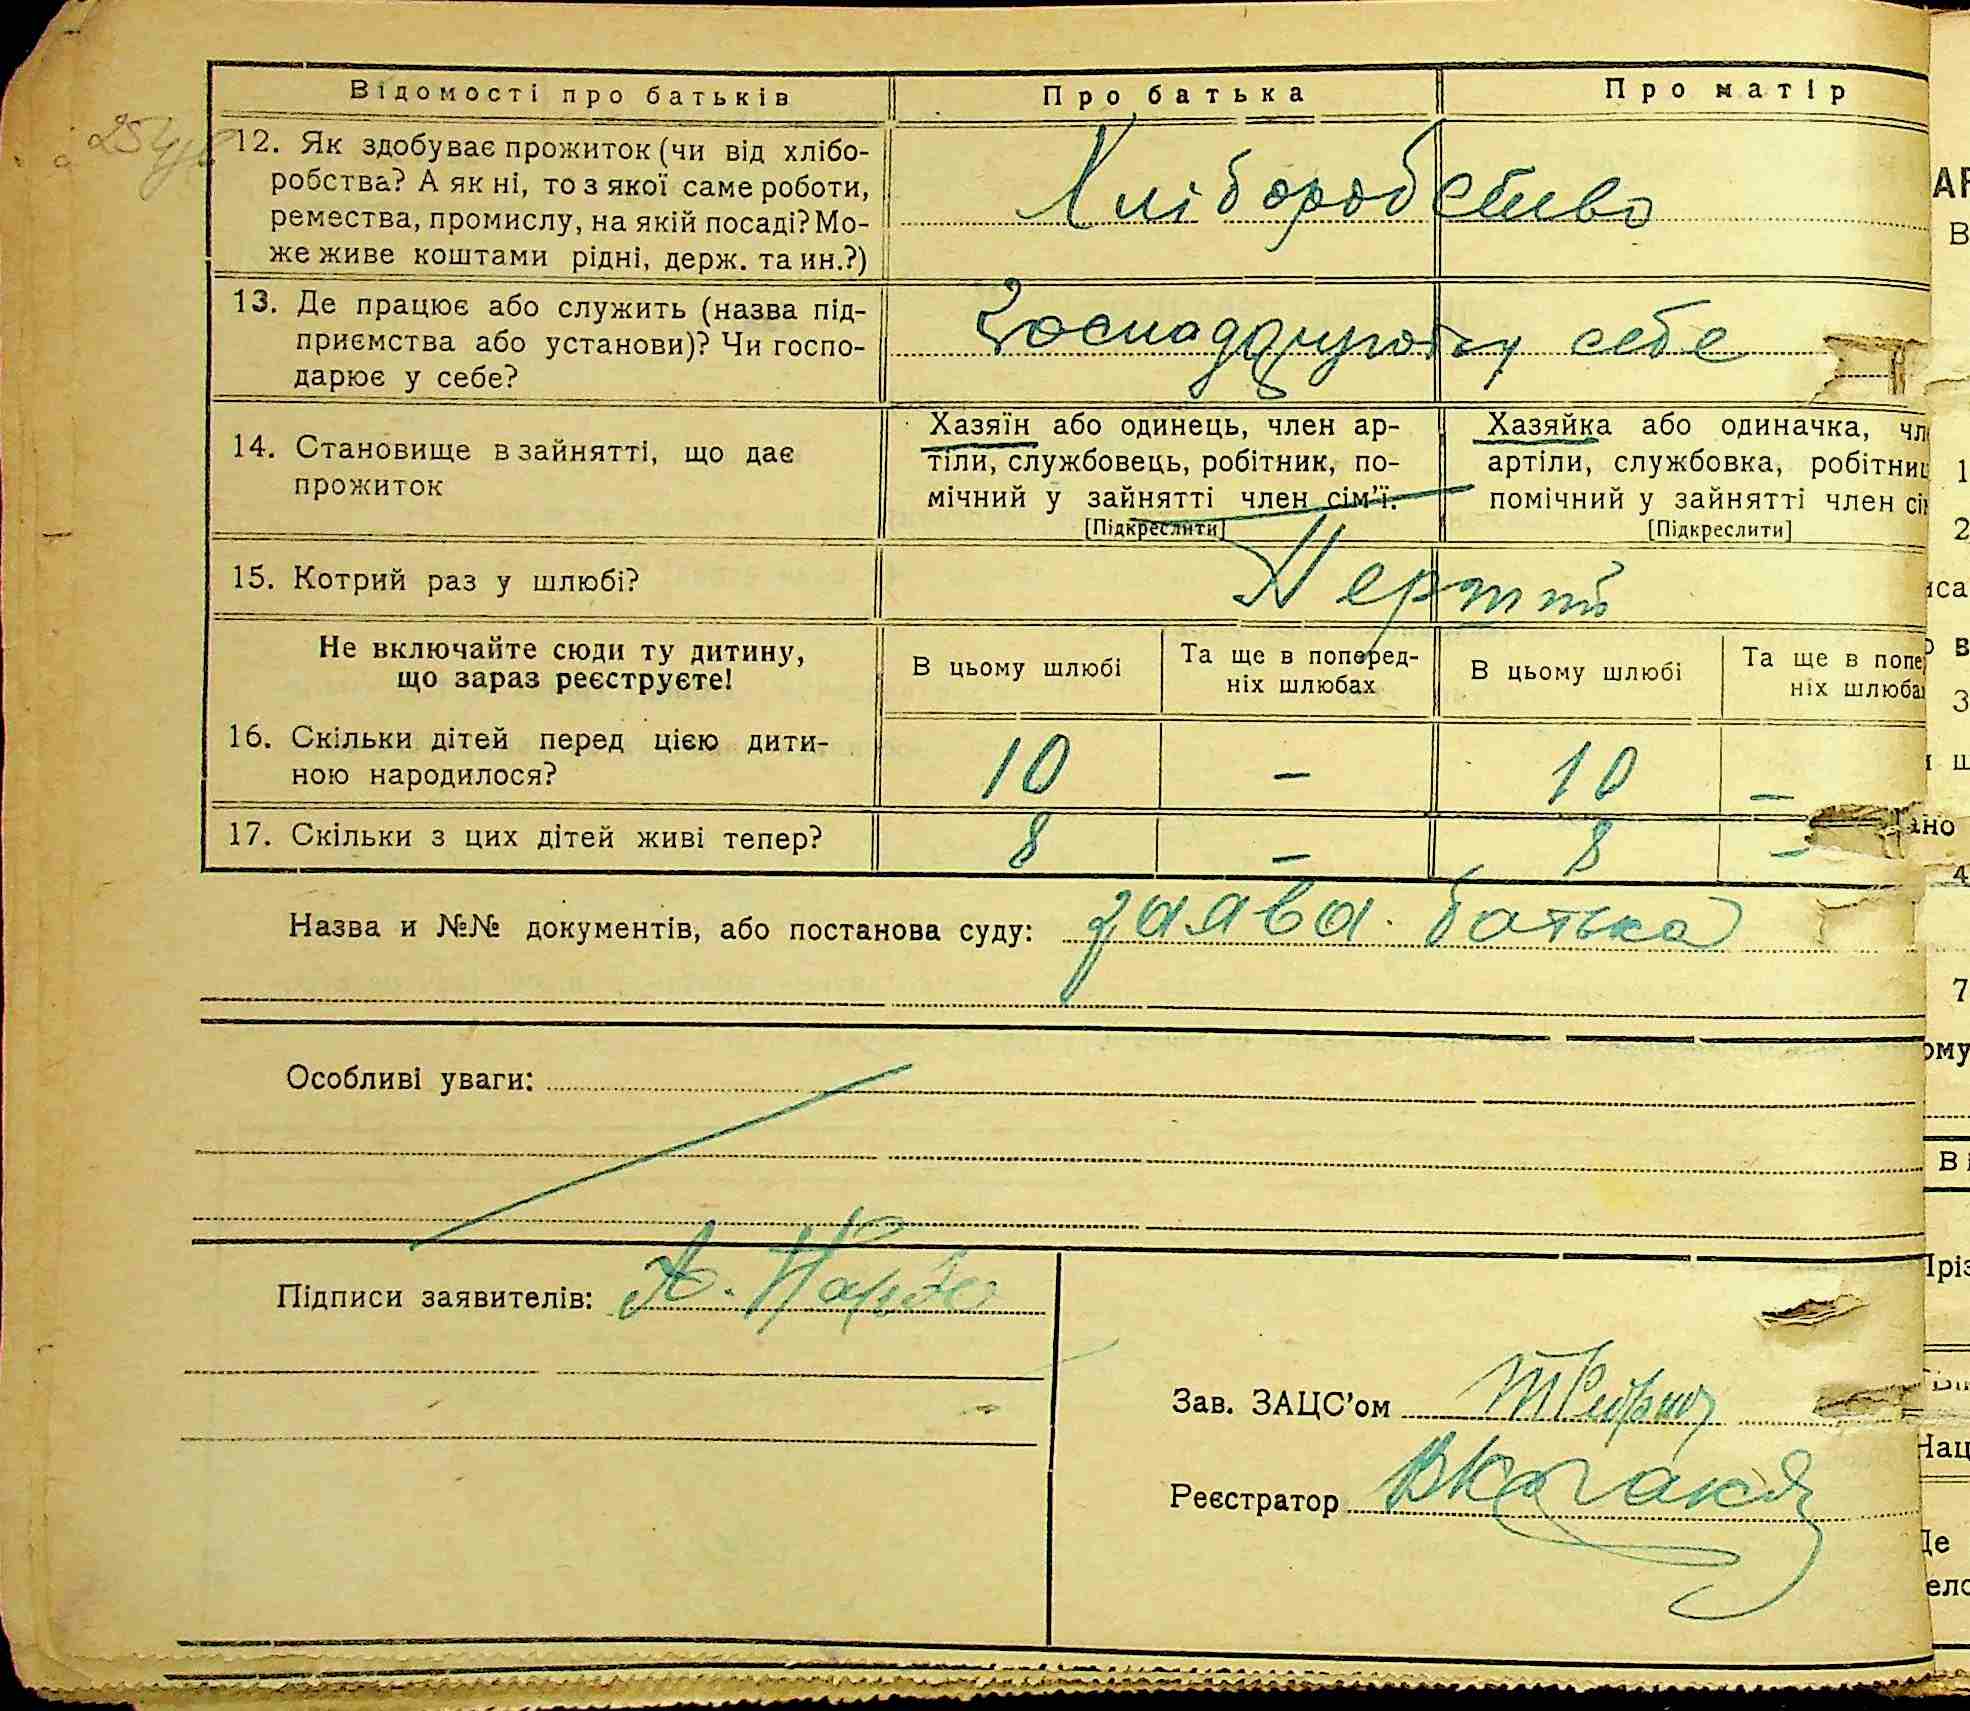 Відомості про батьків Про батька Про матір
12. Як здобуває прожиток (чи від хлібо-
робства? А як ні, то з якої саме роботи,
ремества, промислу, на якій посаді? Мо-
же живе коштами рідні, держ. та ин.?)
Хліборобство
13. Де працює або служить (назва під-
приємства або установи)? Чи госпо-
дарює у себе?
у себе
14. Становище в зайнятті, що дає
прожиток
Хазяїн або одинець, член ар-
тіли, службовець, робітник, по-
мічний у зайнятті член сім'ї.
[Підкреслити]
Хазяйка або одиначка, чл
артіли, службовка, робітниц
помічний у зайнятті член сі
[Підкреслити]
15. Котрий раз у шлюбі?
Перший
Не включайте сюди ту дитину,
що зараз реєструєте!
В цьому шлюбі
Та ще в поперед-
ніх шлюбах
В цьому шлюбі
Та ще в попе
ніх шлюба
16. Скільки дітей перед цією дити-
ною народилося?
10 – 10 –
17. Скільки з цих дітей живі тепер?
8 – 8 –
Назва и №№ документів, або постанова суду: заява батька
Особливі уваги:
Підписи заявителів: А.
Зав. ЗАЦС'ом
Реєстратор